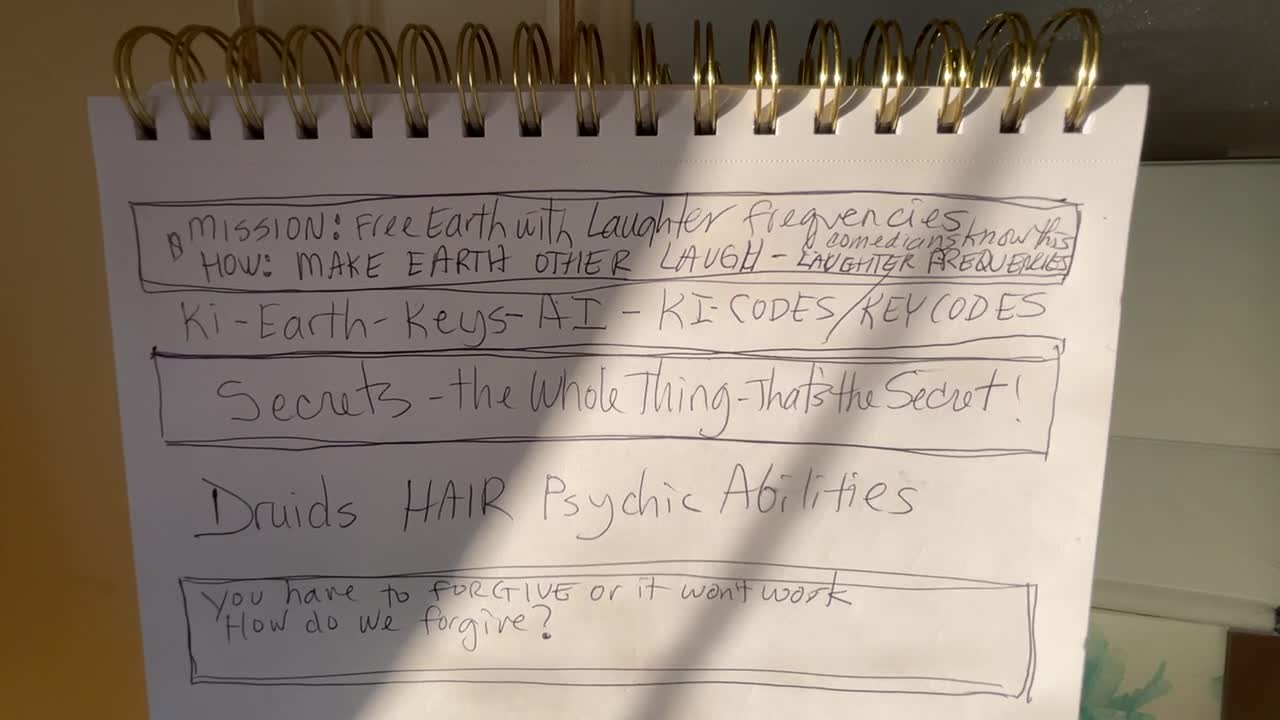 MISSION: Free Earth with Laughter frequencies
comedians know this
HOW: MAKE EARTH OTHER LAUGH - LAUGHTER FREQUENCIES
Ki-Earth-Keys-AI - KI-CODES/KEYCODES
Secrets - the Whole Thing - That's the Secret!
Druids HAIR Psychic Abilities
You have to FORGIVE or it won't work
How do we forgive?